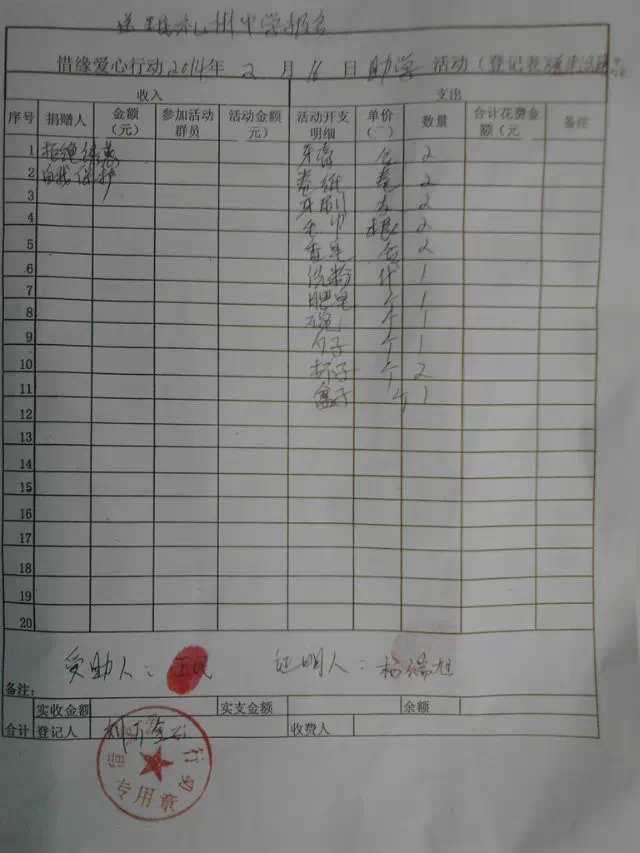 送 州中学报名
惜缘爱心行动2014年 2 月 16 日 助学 活动（登记表）
收入 支出
序号 捐赠人 金额（元） 参加活动群员 活动金额（元） 活动开支明细 单价（ ） 数量 合计花费金额（元） 备注
1 拒绝 牙膏 合 2
2 自我保护 卷纸 卷 2
3 牙刷 2
4 毛巾 根 2
5 香皂 2
6 洗粉 代 1
7 肥皂 个 1
8 个 1
9 勺子 个 1
10 杯子 个 2
11 盒子 个 1
12
13
14
15
16
17
18
19
20
受助人： 证明人：杨瑞旭
备注：
实收金额 实支金额 余额
合计 登记人 收费人
行动
专用章